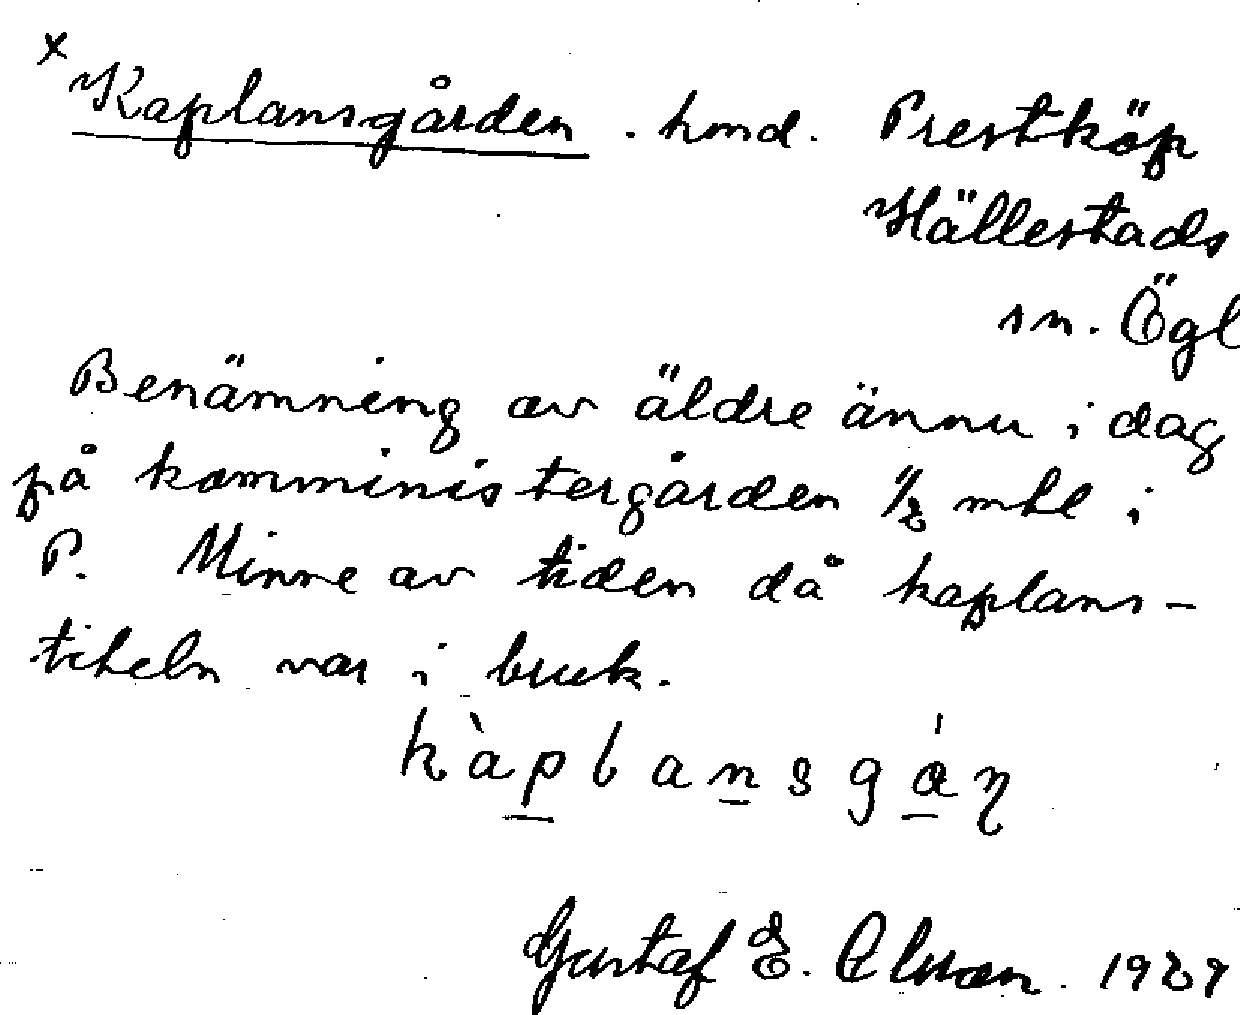 x Kaplansgården . hmd. Prestköp
Hällestads
sn. Ögl
Benämning av äldre ännu i dag
på komministergården 1/2 mtl i
P. Minne av tiden då kaplans-
titeln var i bruk.
kàplansgán
Gustaf E. 1929